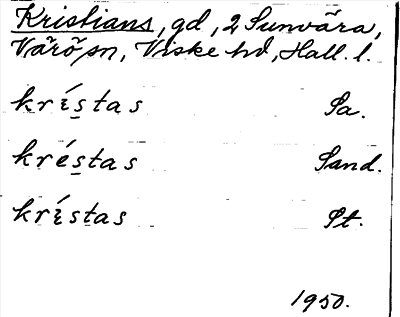 Kristians, gd, 2 Sunvära,
Värö sn, Viske hd, Hall. l.
krístas Sa.
kréstas Sand.
krístas St.
1950.